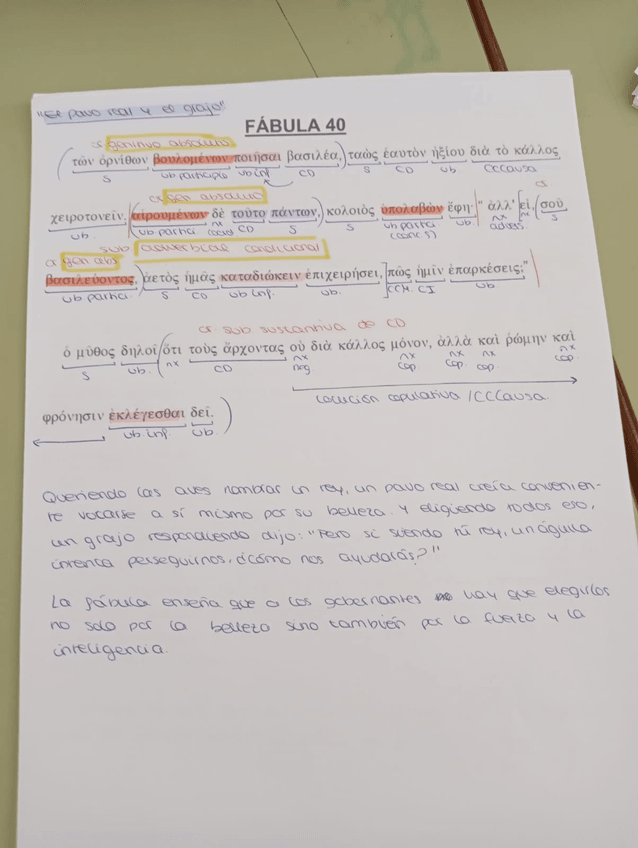 "El pavo real y el grajo"
FÁBULA 40
or genitivo absoluto
τῶν ὀρνίθων βουλομένων ποιῆσαι βασιλέα, ταὼς ἑαυτὸν ἠξίου διὰ τὸ κάλλος
S vb participio vb inf. CD S CD vb CCCausa
or gen absoluto
χειροτονεῖν, αἱρουμένων δὲ τοῦτο πάντων, κολοιὸς ὑπολαβὼν ἔφη· " ἀλλ' εἰ, σοῦ
vb vb partici. nx coord CD S S vb partici (conc S) vb. nx advers. nx S
or sub adverbial condicional
or gen abs
βασιλεύοντος, ἀετὸς ἡμᾶς καταδιώκειν ἐπιχειρήσει, πῶς ἡμῖν ἐπαρκέσεις;"
vb partici. S CD vb inf. vb. CCM. CI vb
or sub sustantiva de CD
ὁ μῦθος δηλοῖ ὅτι τοὺς ἄρχοντας οὐ διὰ κάλλος μόνον, ἀλλὰ καὶ ῥώμην καὶ
S vb. nx CD nx neg. nx cop. nx cop. nx cop. nx cop.
locución copulativa /CCCausa
φρόνησιν ἐκλέγεσθαι δεῖ.
vb inf. vb.
Queriendo las aves nombrar un rey, un pavo real creía convenien-
te votarse a sí mismo por su belleza. Y eligiendo todos eso,
un grajo respondiendo dijo: "Pero si siendo tú rey, un águila
intenta perseguirnos, ¿cómo nos ayudarás?"
La fábula enseña que a los gobernantes hay que elegirlos
no solo por la belleza sino también por la fuerza y la
inteligencia.